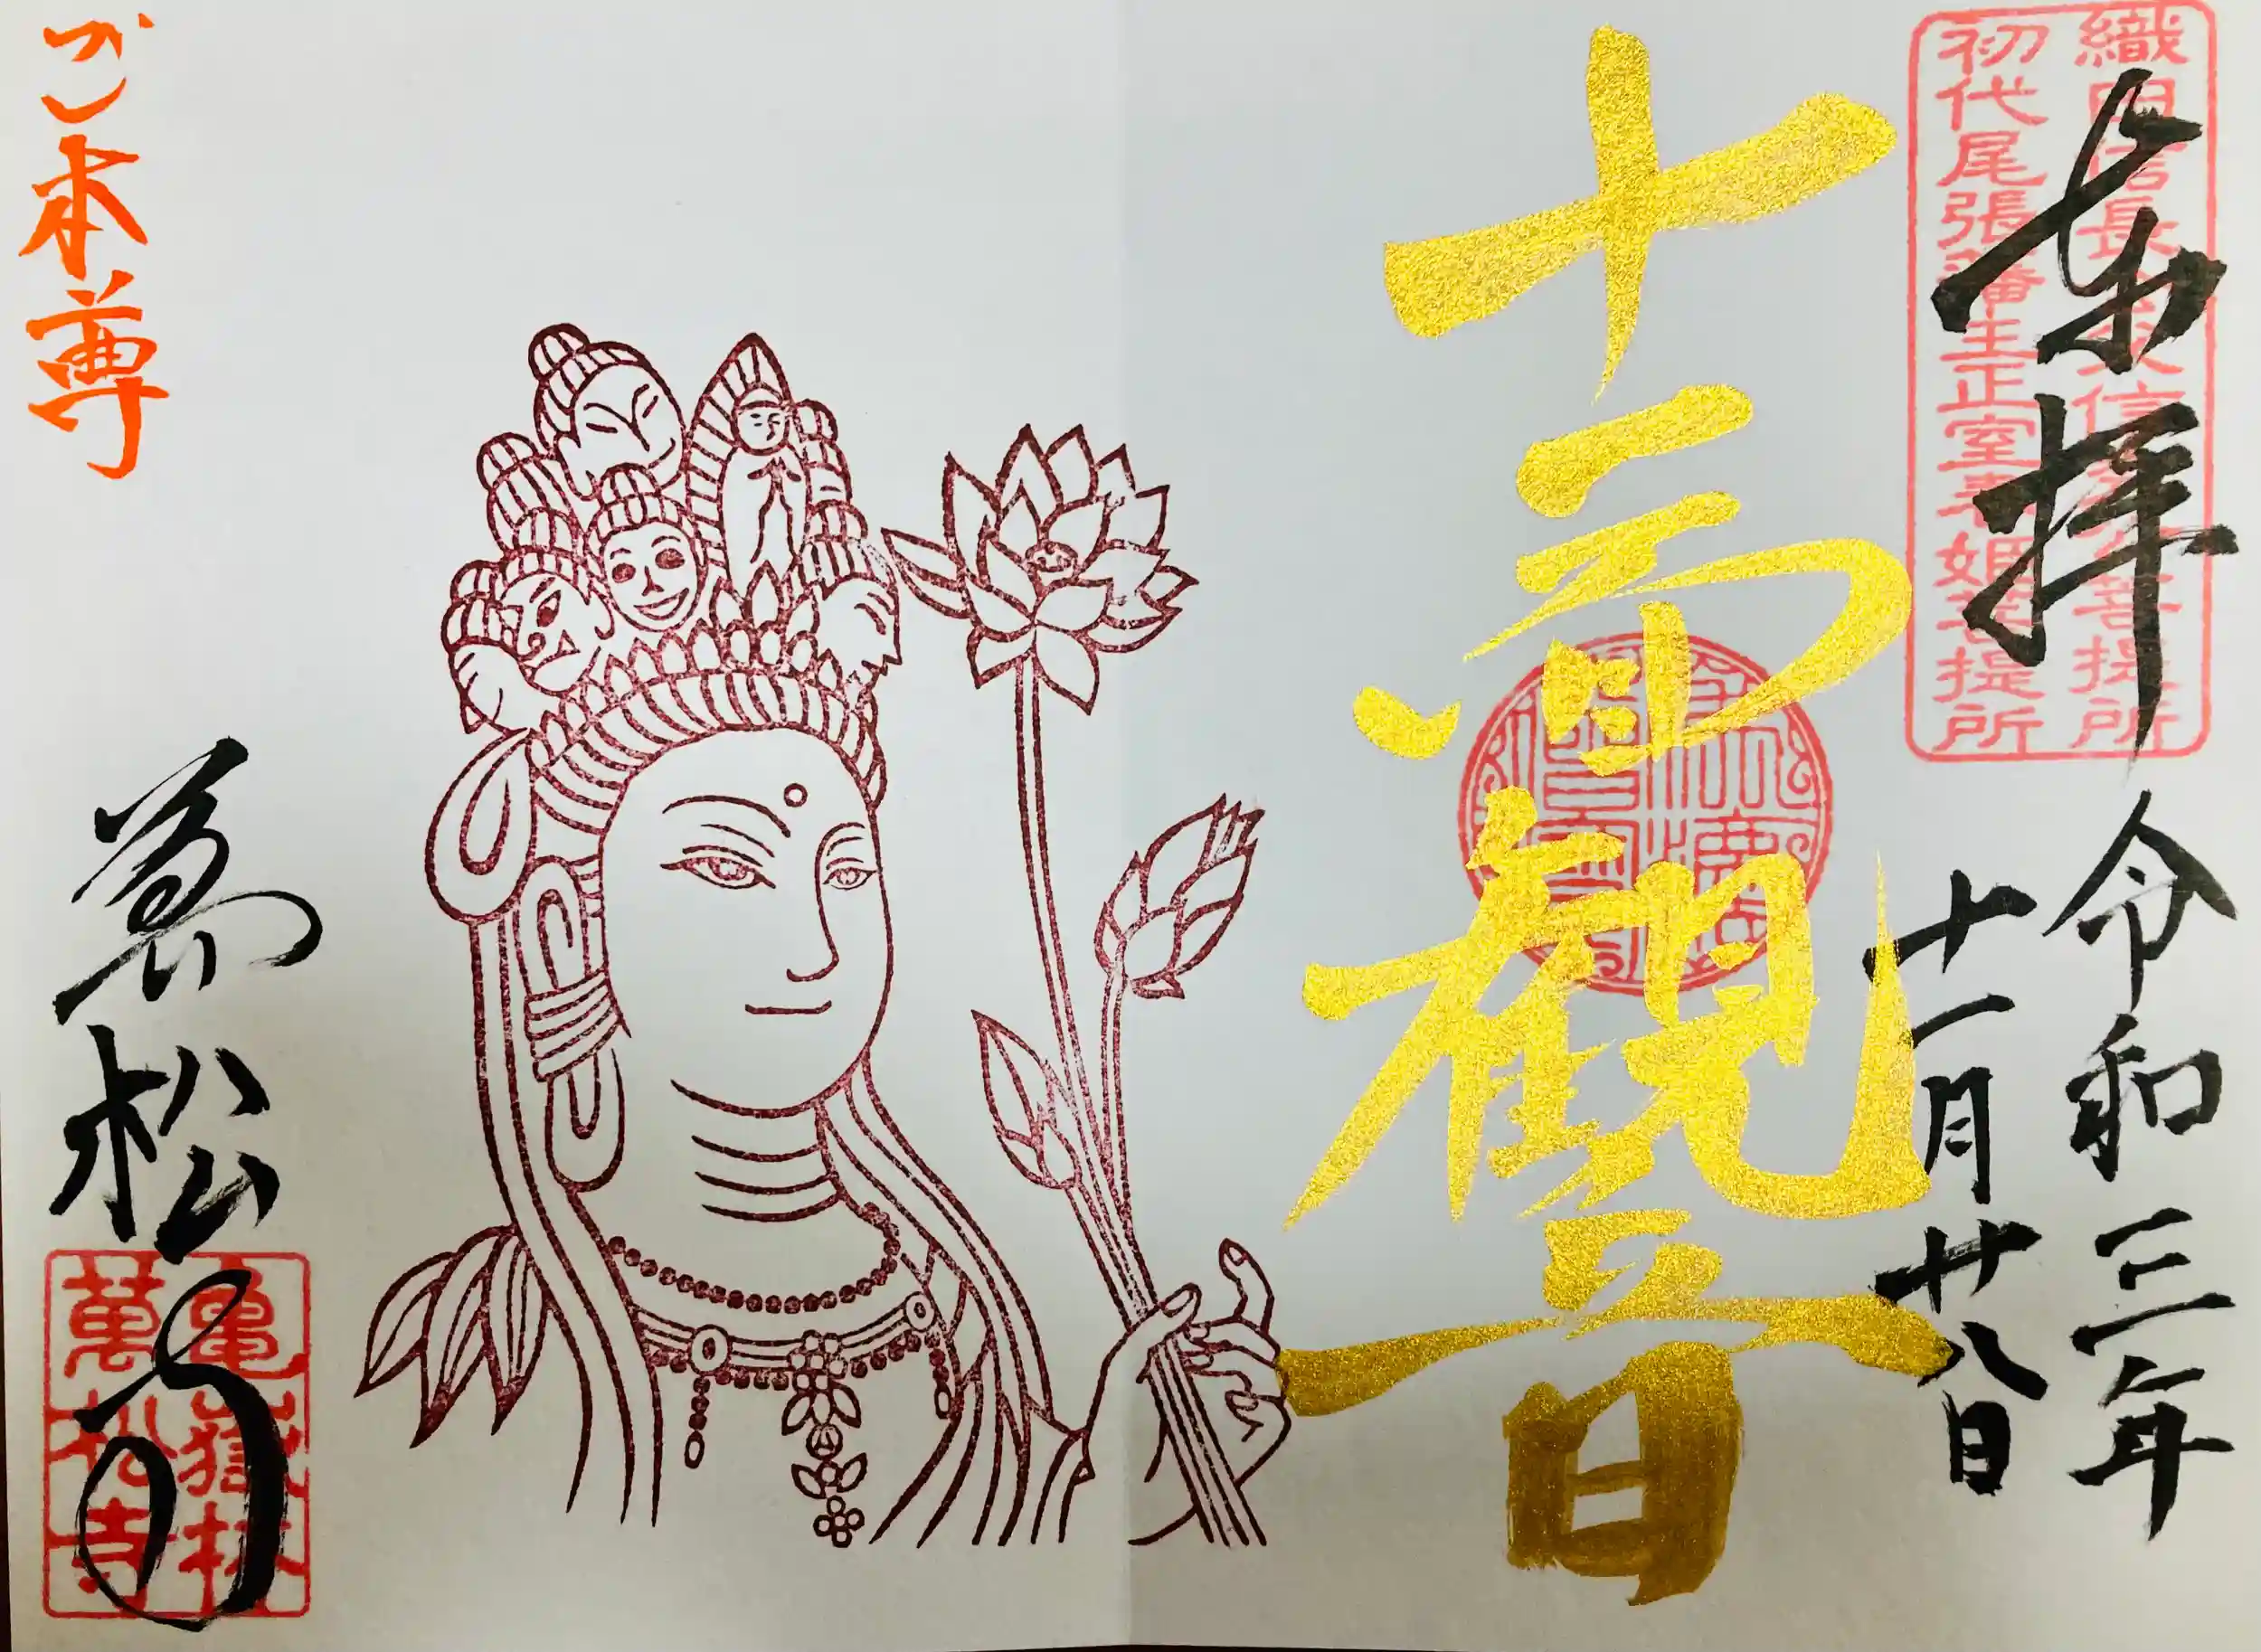 奉拝
織田信長公父信秀公菩提所
初代尾張藩主正室春姫菩提所
令和三年
十一月廿八日
十一面観音
ご本尊
萬松寺
亀嶽林
萬松寺